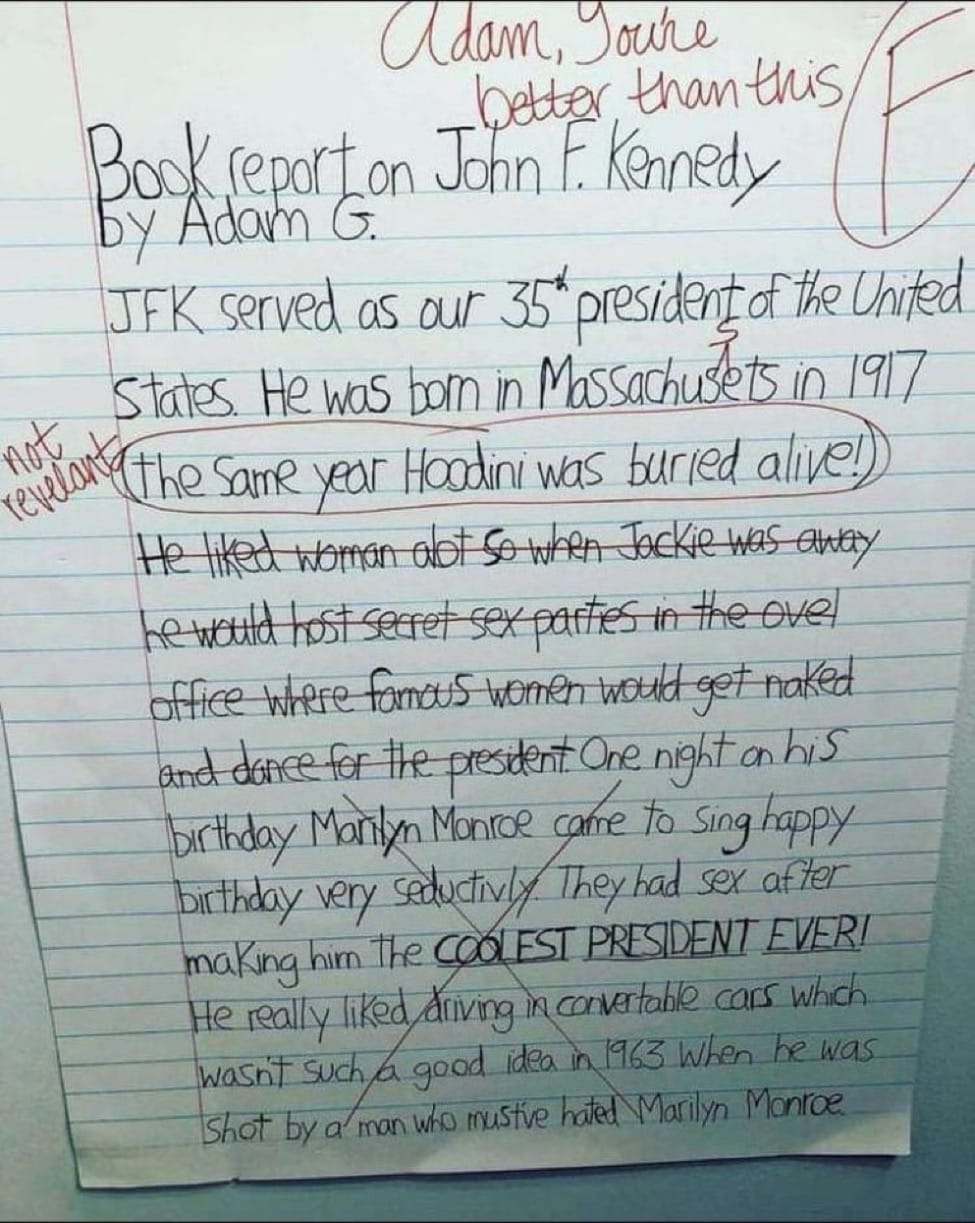 Adam, You're
better than this F
Book report on John F. Kennedy
by Adam G.
JFK served as our 35th president of the United
States. He was born in Massachusets in 1917
s
not
revelant
(the same year Hoodini was buried alive!)
He liked woman alot so when Jackie was away
he would host secret sex parties in the ovel
office where famous women would get naked
and dance for the president. One night on his
birthday Marilyn Monroe came to sing happy
birthday very seductivly. They had sex after
making him the COOLEST PRESIDENT EVER!
He really liked driving in convertable cars which
wasn't such a good idea in 1963 when he was
shot by a man who mustive hated Marilyn Monroe.